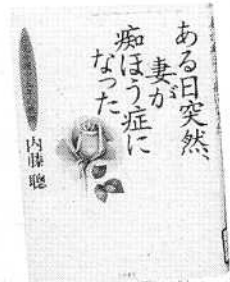 ある日突然、
妻が
痴ほう症に
なった
内藤 聰